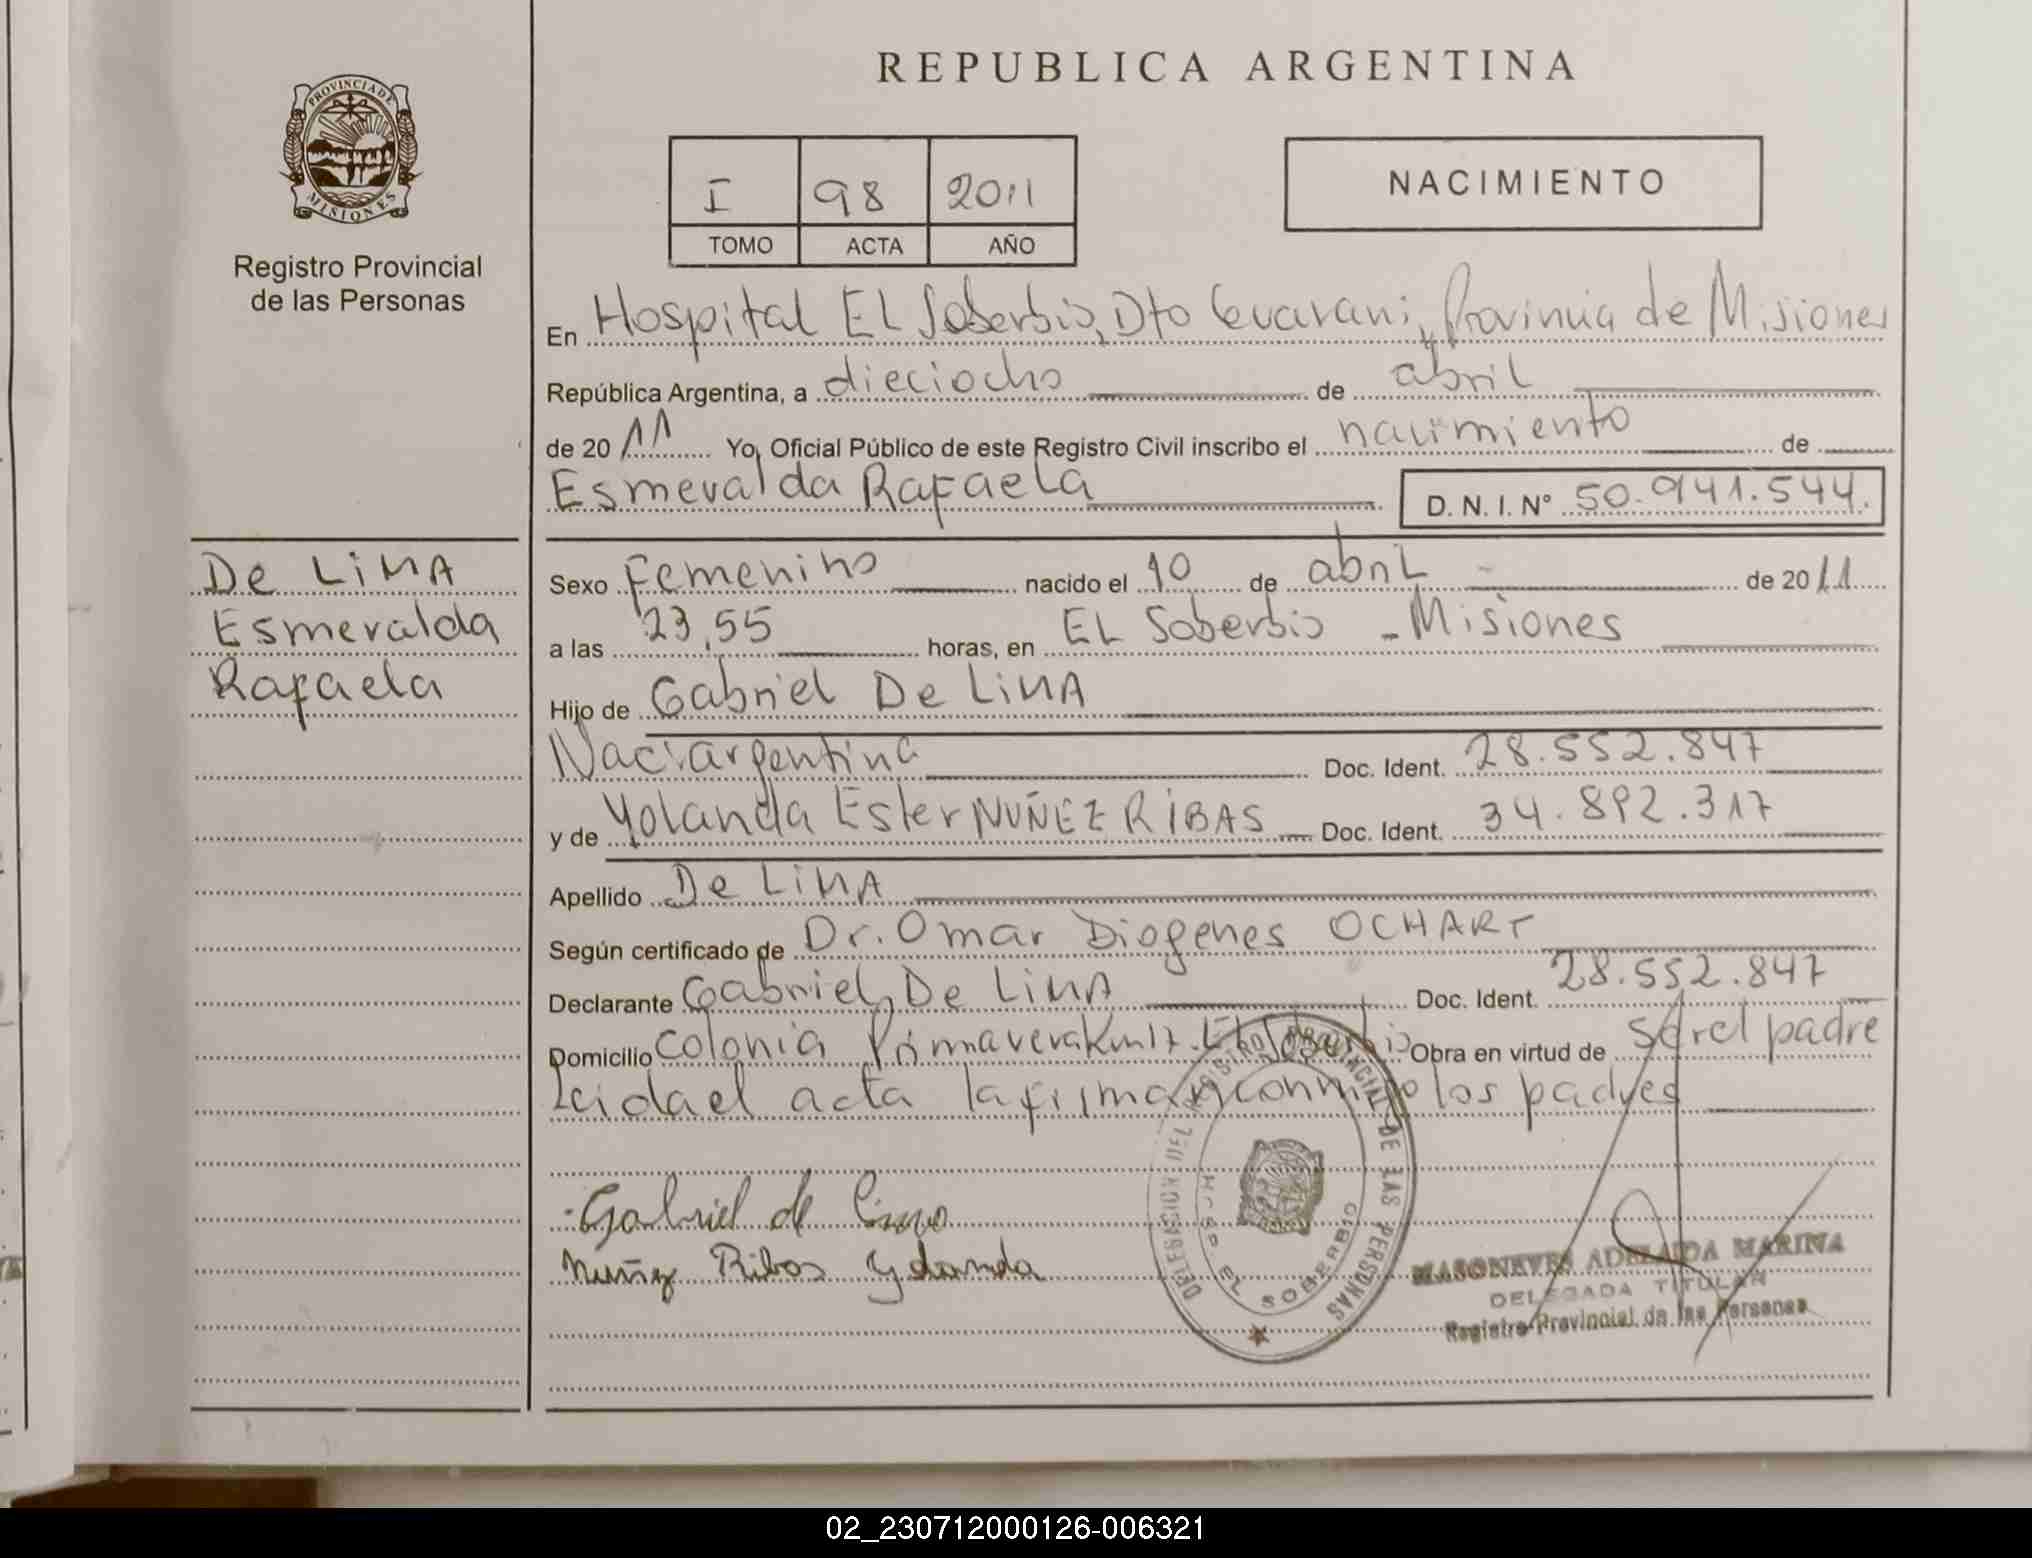 PROVINCIA DE
MISIONES
Registro Provincial
de las Personas
De LiMA
Esmeralda
Rafaela
REPUBLICA ARGENTINA
I 98 2011
TOMO ACTA AÑO
NACIMIENTO
En Hospital EL Soberbio, Dto Guarani, Provincia de Misiones
República Argentina, a dieciocho de abril
de 2011 Yo, Oficial Público de este Registro Civil inscribo el nacimiento de
Esmeralda Rafaela D. N. I. N° 50.941.544.
Sexo Femenino nacido el 10 de abril de 2011
a las 23,55 horas, en EL Soberbio - Misiones
Hijo de Gabriel De LiMA
Nac: argentina Doc. Ident. 28.552.847
y de Yolanda Ester NUÑEZ RiBAS Doc. Ident. 34.892.317
Apellido De LiMA
Según certificado de Dr. Omar Diogenes OCHART
Declarante Gabriel De LiMA Doc. Ident. 28.552.847
Domicilio colonia Primavera Km 17. EL Soberbio Obra en virtud de ser el padre
Leida el acta la firman conmigo los padres
Gabriel de Lima
Nuñez Ribas Yolanda
DELEGACION DEL REGISTRO PROVINCIAL DE LAS PERSONAS
HOSP. EL SOBERBIO
MASONEVES ADELAIDA MARINA
DELEGADA TITULAR
Registro Provincial de las Personas
02_230712000126-006321